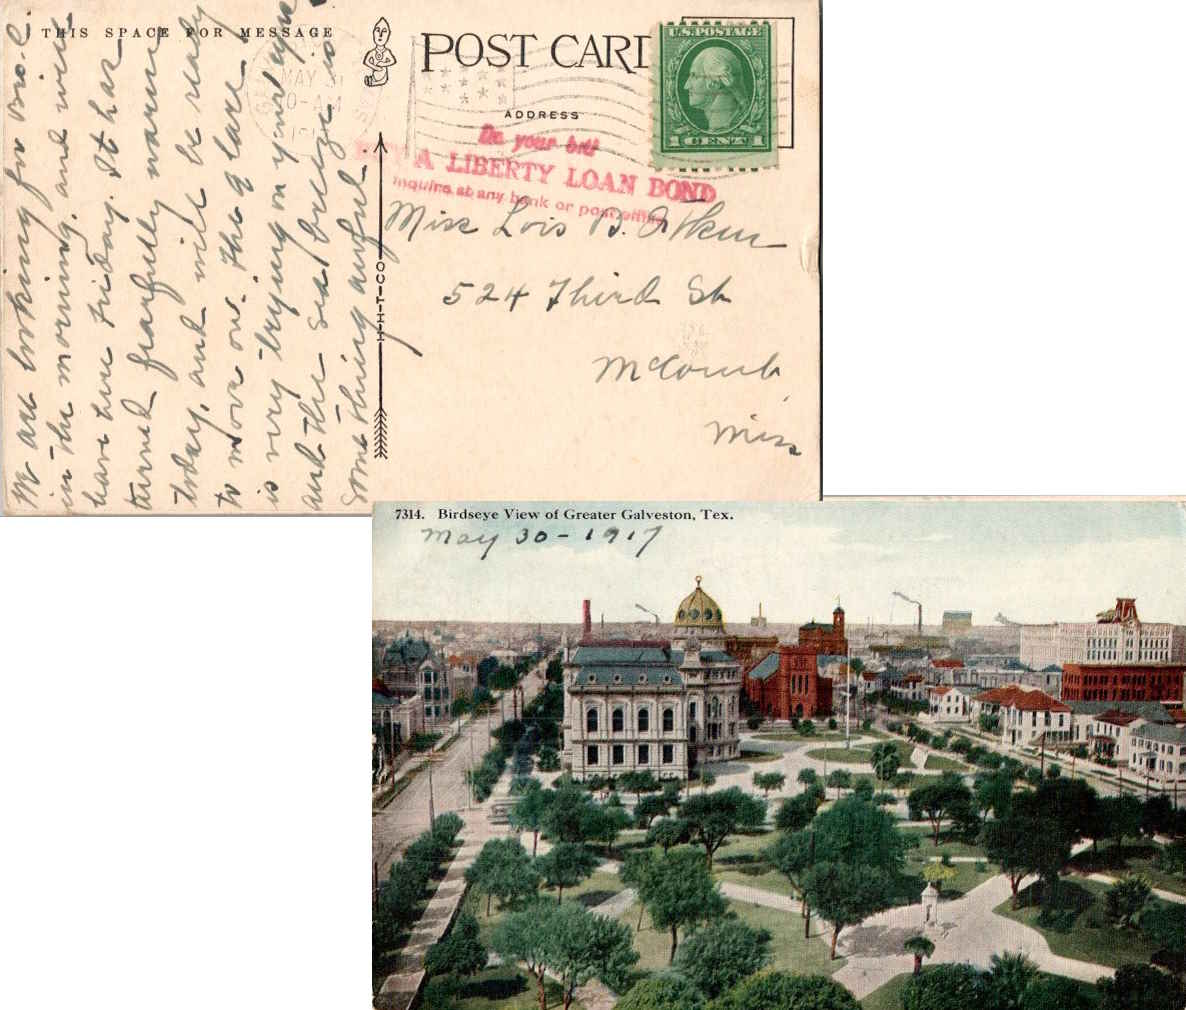 THIS SPACE FOR MESSAGE
POST CARD
ADDRESS
U.S. POSTAGE
1 CENT 1
MAY 31
Do your bit
BUY A LIBERTY LOAN BOND
Inquire at any bank or post office
Miss Lois B.
524 Third St
McComb
Miss
H-H-T-CO
We are looking for Bro. C.
in the morning, and will
leave here Friday. It has
turned fearfully warm
today, and will be ready
to move on. The glare
is very trying on your eyes
and the sea breeze is
something awful.
7314. Birdseye View of Greater Galveston, Tex.
May 30 - 1917